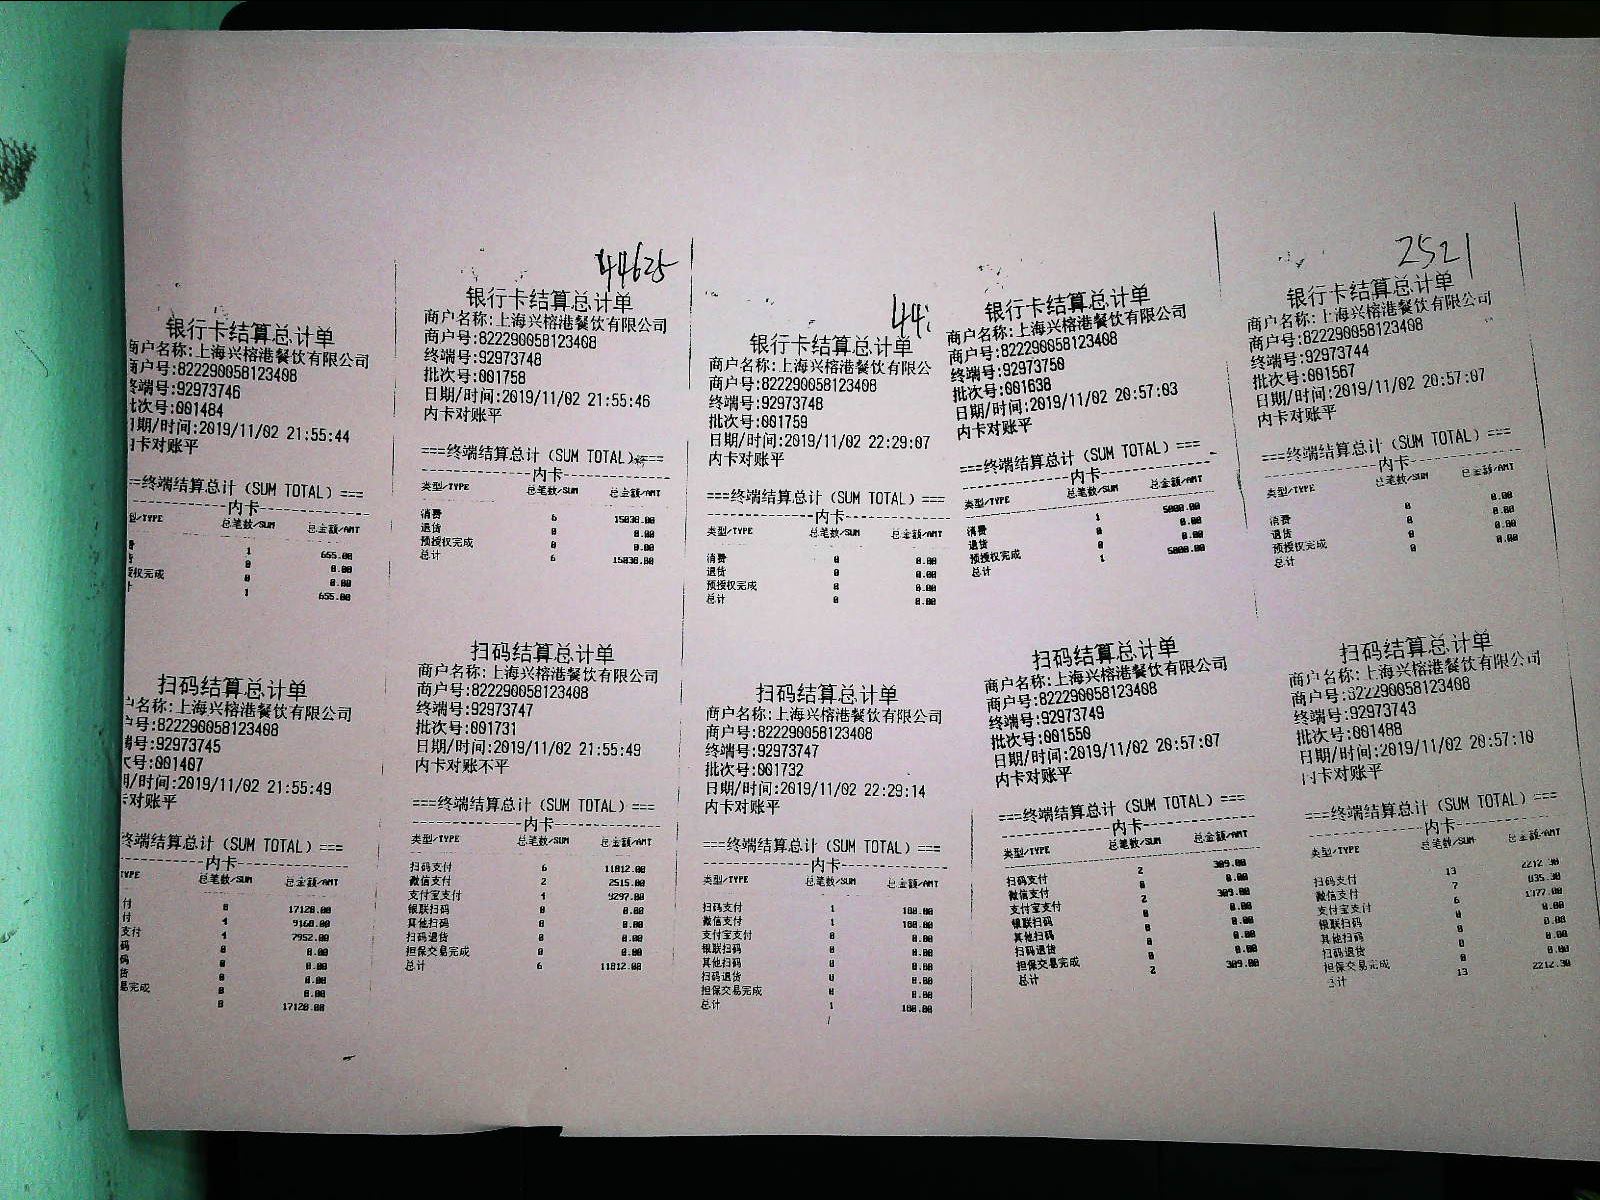 银行卡结算总计单
商户名称:上海兴榕港餐饮有限公司
商户号:822290058123408
终端号:92973746
批次号:001484
日期/时间:2019/11/02 21:55:44
内卡对账平
===终端结算总计(SUM TOTAL)===
内卡
型/TYPE 总笔数/SUM 总金额/AMT
1 655.00
0 0.00
权完成 0 0.00
1 655.00
扫码结算总计单
户名称:上海兴榕港餐饮有限公司
户号:822290058123408
端号:92973745
次号:001407
期/时间:2019/11/02 21:55:49
卡对账平
终端结算总计(SUM TOTAL)===
内卡
TYPE 总笔数/SUM 总金额/AMT
付 8 17120.00
付 4 9168.00
支付 4 7952.00
码 0 0.00
码 0 0.00
货 0 0.00
易完成 0 0.00
8 17120.00
44625
银行卡结算总计单
商户名称:上海兴榕港餐饮有限公司
商户号:822290058123408
终端号:92973748
批次号:001758
日期/时间:2019/11/02 21:55:46
内卡对账平
===终端结算总计(SUM TOTAL)===
内卡
类型/TYPE 总笔数/SUM 总金额/AMT
消费 6 15038.00
退货 0 0.00
预授权完成 0 0.00
总计 6 15038.00
扫码结算总计单
商户名称:上海兴榕港餐饮有限公司
商户号:822290058123408
终端号:92973747
批次号:001731
日期/时间:2019/11/02 21:55:49
内卡对账不平
===终端结算总计(SUM TOTAL)===
内卡
类型/TYPE 总笔数/SUM 总金额/AMT
扫码支付 6 11812.00
微信支付 2 2515.00
支付宝支付 4 9297.00
银联扫码 0 0.00
其他扫码 0 0.00
扫码退货 0 0.00
担保交易完成 0 0.00
总计 6 11812.00
银行卡结算总计单
商户名称:上海兴榕港餐饮有限公
商户号:822290058123408
终端号:92973748
批次号:001759
日期/时间:2019/11/02 22:29:07
内卡对账平
===终端结算总计(SUM TOTAL)===
内卡
类型/TYPE 总笔数/SUM 总金额/AMT
消费 0 0.00
退货 0 0.00
预授权完成 0 0.00
总计 0 0.00
扫码结算总计单
商户名称:上海兴榕港餐饮有限公司
商户号:822290058123408
终端号:92973747
批次号:001732
日期/时间:2019/11/02 22:29:14
内卡对账平
===终端结算总计(SUM TOTAL)===
内卡
类型/TYPE 总笔数/SUM 总金额/AMT
扫码支付 1 100.00
微信支付 1 100.00
支付宝支付 0 0.00
银联扫码 0 0.00
其他扫码 0 0.00
扫码退货 0 0.00
担保交易完成 0 0.00
总计 1 100.00
银行卡结算总计单
商户名称:上海兴榕港餐饮有限公司
商户号:822290058123408
终端号:92973750
批次号:001638
日期/时间:2019/11/02 20:57:03
内卡对账平
===终端结算总计(SUM TOTAL)===
内卡
类型/TYPE 总笔数/SUM 总金额/AMT
消费 1 5000.00
退货 0 0.00
预授权完成 0 0.00
总计 1 5000.00
扫码结算总计单
商户名称:上海兴榕港餐饮有限公司
商户号:822290058123408
终端号:92973749
批次号:001550
日期/时间:2019/11/02 20:57:07
内卡对账平
===终端结算总计(SUM TOTAL)===
内卡
类型/TYPE 总笔数/SUM 总金额/AMT
扫码支付 2 309.00
微信支付 0 0.00
支付宝支付 2 309.00
银联扫码 0 0.00
其他扫码 0 0.00
扫码退货 0 0.00
担保交易完成 0 0.00
总计 2 309.00
2521
银行卡结算总计单
商户名称:上海兴榕港餐饮有限公司
商户号:822290058123408
终端号:92973744
批次号:001567
日期/时间:2019/11/02 20:57:07
内卡对账平
===终端结算总计(SUM TOTAL)===
内卡
类型/TYPE 总笔数/SUM 总金额/AMT
消费 0 0.00
退货 0 0.00
预授权完成 0 0.00
总计 0 0.00
扫码结算总计单
商户名称:上海兴榕港餐饮有限公司
商户号:822290058123408
终端号:92973743
批次号:001488
日期/时间:2019/11/02 20:57:10
内卡对账平
===终端结算总计(SUM TOTAL)===
内卡
类型/TYPE 总笔数/SUM 总金额/AMT
扫码支付 13 2212.30
微信支付 7 835.30
支付宝支付 6 1377.00
银联扫码 0 0.00
其他扫码 0 0.00
扫码退货 0 0.00
担保交易完成 0 0.00
总计 13 2212.30